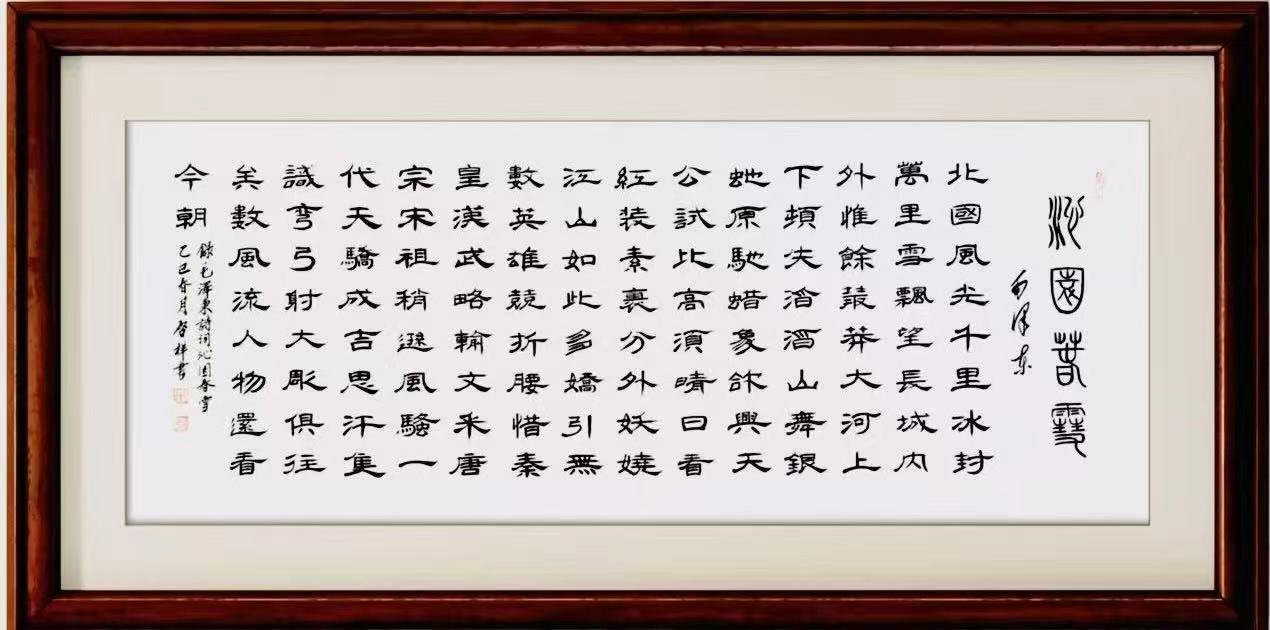 沁園春雪
毛澤東
北國風光千里冰封
萬里雪飄望長城内
外惟餘莽莽大河上
下頓失滔滔山舞銀
蛇原馳蜡象欲與天
公試比高須晴日看
紅装素裹分外妖嬈
江山如此多嬌引無
數英雄競折腰惜秦
皇漢武略輸文采唐
宗宋祖稍遜風騷一
代天驕成吉思汗隻
識彎弓射大彫俱往
矣數風流人物還看
今朝
錄毛澤東詩詞沁園春雪
乙巳春月啓祥書